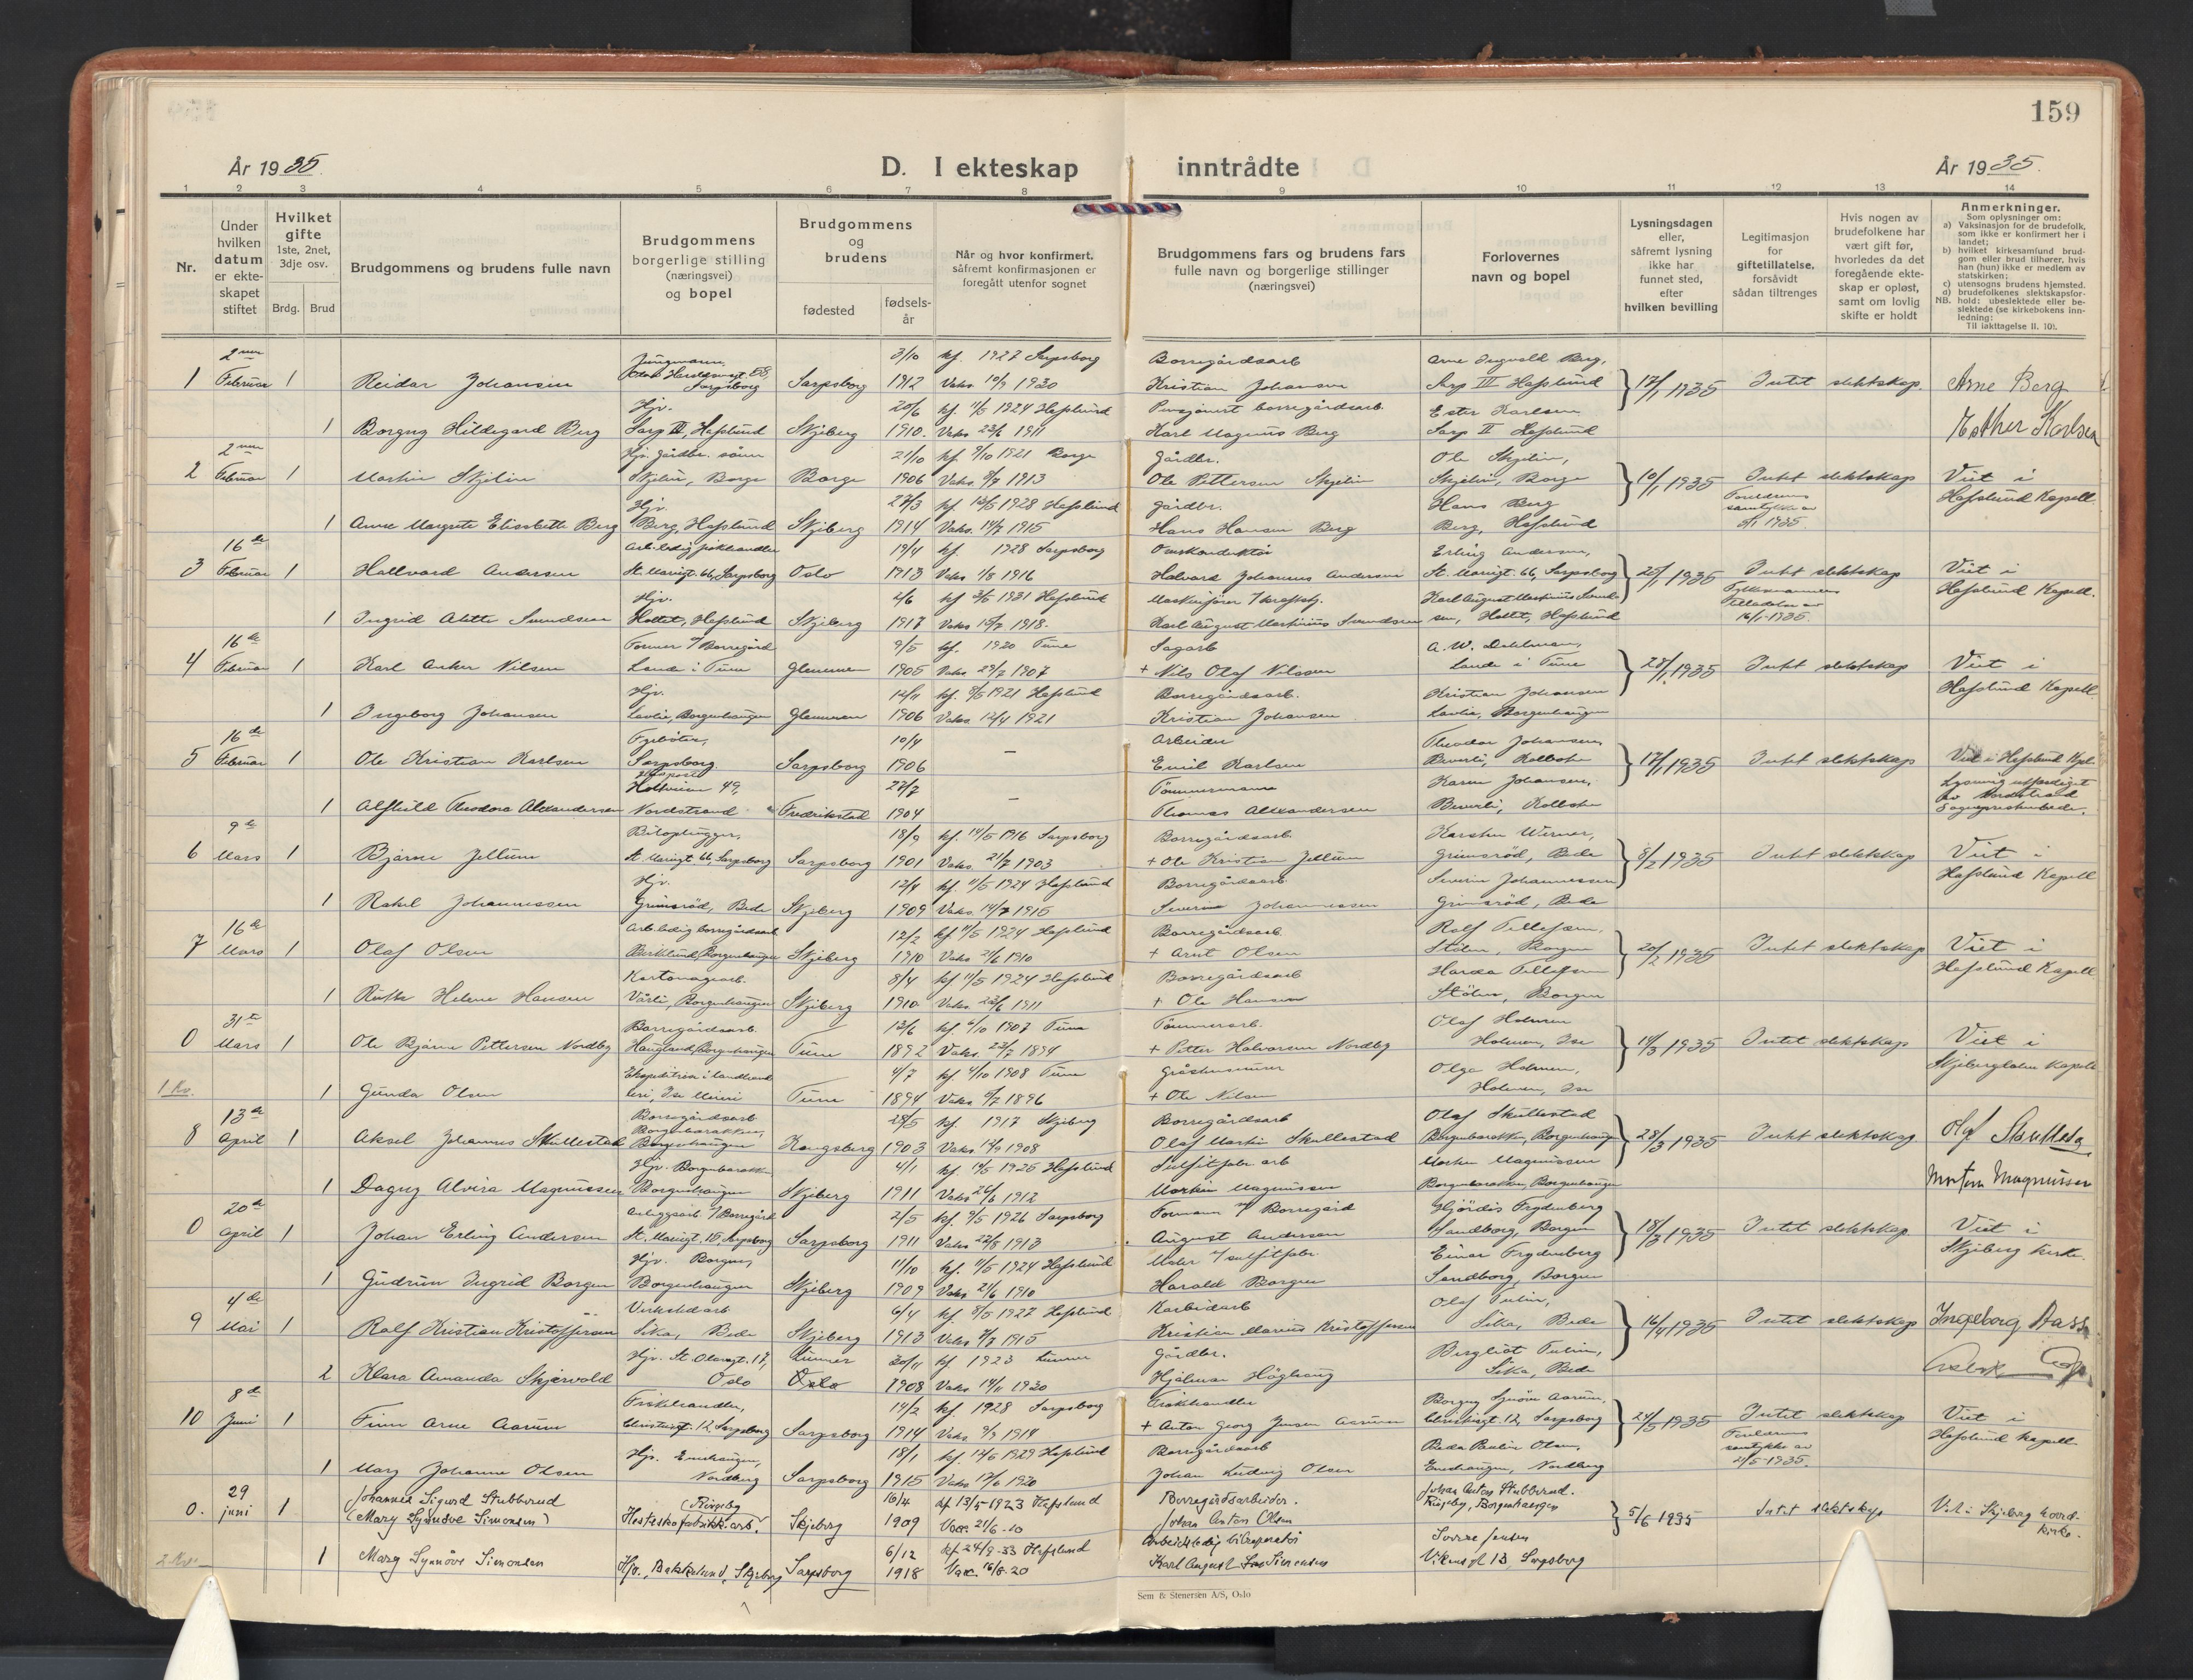 159
År 1935.
D. I ekteskap inntrådte
År 1935.
1 2 3 4 5 6 7 8 9 10 11 12 13 14
Nr.
Under hvilken datum er ekteskapet stiftet
Hvilket gifte 1ste, 2net, 3dje osv.
Brdg. Brud
Brudgommens og brudens fulle navn
Brudgommens borgerlige stilling (næringsvei) og bopel
Brudgommens og brudens
fødested
fødsels-år
Når og hvor konfirmert, såfremt konfirmasjonen er foregått utenfor sognet
Brudgommens fars og brudens fars fulle navn og borgerlige stillinger (næringsvei)
Forlovernes navn og bopel
Lysningsdagen eller, såfremt lysning ikke har funnet sted, efter hvilken bevilling
Legitimasjon for giftetillatelse, forsåvidt sådan tiltrenges
Hvis nogen av brudefolkene har vært gift før, hvorledes da det foregående ekteskap er opløst, samt om lovlig skifte er holdt
Anmerkninger.
Som oplysninger om:
a) Vaksinasjon for de brudefolk, som ikke er konfirmert her i landet;
b) hvilket kirkesamfund brudgom eller brud tilhører, hvis han (hun) ikke er medlem av statskirken;
c) utensogns brudens hjemsted.
d) brudefolkenes slektskapsforhold: ubeslektede eller beslektede (se kirkebokens innledning:
NB.
Til iakttagelse II. 10).
2nen 3/10 kf. 1927 Sarpsborg Borregårdsarb Arne Ingvald Berg,
1 Februar 1 Reidar Johansen Sarpsborg Sarpsborg 1912 Vaks. 10/9 1930 Kristian Johansen Sarp III Hafslund 17/1 1935 Intet slektskap. Arne Berg
Hjv. 20/6 kf. 11/5 1924 Hafslund Pensjonert borregårdsarb. Ester Karlsen
1 Borgny Hildegard Berg Sarp III, Hafslund Skjeberg 1910. Vaks 23/6 1911 Karl Magnus Berg Sarp II Hafslund Esther Karlsen
2nen Hjv. gårdbr. sønn 21/10 kf. 9/10 1921 Borge Gårdbr. Ole Skjelin,
2 Februar 1 Martin Skjelin Skjelin, Borge Borge 1906 Vaks. 8/7 1913 Ole Pettersen Skjelin Skjelin, Borge 10/1 1935 Intet slektskap Viet i
Hjv. 27/3 kf. 13/5 1928 Hafslund Gårdbr. Hans Berg Foreldrenes samtykke av Hafslund Kapell.
1 Anne Margrete Elisabeth Berg Berg, Hafslund Skjeberg 1914 Vaks. 14/7 1915 Hans Hansen Berg Berg, Hafslund 1935.
16de 19/4 kf. 1928 Sarpsborg Erling Andersen,
3 Februar 1 Hallvard Andersen St. Mariegt. 66, Sarpsborg Oslo 1913 Vaks 1/8 1916 Halvard Johannes Andersen St. Mariegt. 66, Sarpsborg 25/1 1935 Intet slektskap Viet i
Hjv. 2/6 kf 3/5 1931 Hafslund Karl August Martinius Svend- Fylkesmannens Hafslund Kapell.
1 Ingrid Alette Svendsen Hattet, Hafslund Skjeberg 1917 Vaks 15/7 1918. Karl August Martinius Svendsen sen, Hattet, Hafslund 16/1-1935.
16de Former v/ Borregård 9/5 kf. 1920 Tune Sagarb A. W. Dahlman,
4 Februar 1 Karl Anker Nilsen Lande i Tune Glemmen 1905 Vaks 29/7 1907 + Nils Olaf Nilssen Lande i Tune 28/1 1935 Intet slektskap Viet i
Hjv. 14/11 kf. 8/5 1921 Hafslund Borregårdsarb. Kristian Johansen Hafslund Kapell
1 Ingeborg Johansen Løvlie, Borgenhaugen Glemmen 1906 Vaks 13/4 1921 Kristian Johansen Løvlie, Borgenhaugen
16de Fyrbøter, 10/4 – Arbeider Theodor Johansen
5 Februar 1 Ole Kristian Karlsen Sarpsborg. Sarpsborg 1906 Emil Karlsen Beverli, Kolbotn 17/1 1935 Intet slektskap Viet i Hafslund Kpl.
Holtveien 49, 27/7 – Tømmermann Karen Johansen, Lysning utferdiget
1 Alfhild Theodora Alexandersen Nordstrand Fredrikstad 1904 Thomas Alexandersen Beverli, Kolbotn av Nordstrand Sogneprestembede.
9de Bilopbugger, 18/9 kf. 14/5 1916 Sarpsborg Borregårdsarb. Karsten Werner,
6 Mars 1 Bjarne Jellum St. Mariegt. 66, Sarpsborg Sarpsborg 1901 Vaks. 21/7 1903 + Ole Kristian Jellum Grimsrød, Bede 8/2 1935 Intet slektskap Viet i
Hjv. 12/4 kf. 11/5 1924 Hafslund Borregårdsarb. Severin Johannessen Hafslund Kapell
1 Rakel Johannessen Grimsrød, Bede Skjeberg 1909 Vaks. 14/7 1915 Severin Johannessen Grimsrød, Bede
16de Arb.ledig borregårdsarb. 12/2 kf 11/5 1924 Hafslund Borregårdsarb. Rolf Tellefsen,
7 Mars 1 Olaf Olsen Borgenhaugen Skjeberg 1910 Vaks 21/6 1910 + Arnt Olsen Stølen, Borgen 20/2 1935 Intet slektskap Viet i
Kartonagearb. 8/4 kf 11/5 1924 Hafslund Borregårdsarb Harda Tellefsen Hafslund Kapell
1 Ruth Helene Hansen Vårli, Borgenhaugen Skjeberg 1910 Vaks. 23/6 1911 + Ole Hansen Stølen, Borgen
31te Borregårdsarb. 13/6 kf. 6/10 1907 Tune Tømmerarb. Olaf Holmen
0 Mars 1 Ole Bjarne Pettersen Nordby Haugland, Borgenhaugen Tune 1892 Vaks. 23/7 1894 + Petter Halvorsen Nordby Holmen, Ise 14/3 1935 Intet slektskap Viet i
4/7 kf. 4/10 1908 Tune Gråsteinsmurer Olga Holmen, Skjebergdalen Kapell
1 Kv. 1 Gunda Olsen Ise Meieri Tune 1894 Vaks. 9/7 1896 + Ole Nilsen Holmen, Ise
13de Borregårdsarb. Borgenbarakken, 28/5 kf. 1917 Skjeberg Borregårdsarb Olaf Skullestad
8 April 1 Aksel Johannes Skullestad Borgenhaugen Kongsberg 1903 Vaks 14/9 1908 Olaf Martin Skullestad Borgenbarakken, Borgenhaugen 28/3 1935 Intet slektskap Olaf Skullestad
Hjv. Borgenbarakken 4/1 kf 14/5 1925 Hafslund Sulfitfabr. arb Morten Magnussen
1 Dagny Alvira Magnussen Borgenhaugen Skjeberg 1911 Vaks 26/6 1912 Morten Magnussen Borgenbarakken, Borgenhaugen Morten Magnussen
20de Anleggsarb. v/ Borregård 2/5 kf. 9/5 1926 Sarpsborg Formann v/ Borregård Hjørdis Frydenberg
0 April 1 Johan Erling Andersen St. Mariegt. 15, Sarpsborg Sarpsborg 1911 Vaks 22/8 1913 August Andersen Sandborg, Borgen 18/3 1935 Intet slektskap Viet i
Hjv. Borgen, 11/10 kf. 11/5 1924 Hafslund Maler v/ sulfitfabr. Einar Frydenberg Skjeberg kirke.
1 Gudrun Ingrid Borgen Borgenhaugen Skjeberg 1909 Vaks 21/6 1910 Harald Borgen Sandborg, Borgen
4de Verkstedarb 6/4 kf. 8/5 1927 Hafslund Karbidarb Olaf Tulin,
9 Mai 1 Rolf Kristian Kristoffersen Sika, Bede Skjeberg 1913 Vaks 9/7 1915 Kristian Marius Kristoffersen Sika, Bede 16/4 1935 Intet slektskap Ingeborg Aass
Hjv. St. Olavsgt. 17, Lunner 30/11 kf. 1923 Lunner Gårdbr. Bergliot Tulin,
2 Klara Amanda Skjervold Oslo Oslo 1908 Vaks 14/11 1920 Hjalmar Høghaug Sika, Bede
8de Fiskehandler, 14/2 kf. 1928 Sarpsborg Fiskehandler Borgny Synøve Aarum,
10 Juni 1 Finn Arne Aarum 12, Sarpsborg Sarpsborg 1914 Vaks 9/9 1914 + Anton Georg Jensen Aarum 12, Sarpsborg 24/5 1935 Intet slektskap Viet i
Hjv. Enehaugen, 18/1 kf. 12/5 1929 Hafslund Borregårdsarb Beda Paulin Olsen, Foreldrenes samtykke av Hafslund Kapell.
1 Mary Johanne Olsen Nordberg Sarpsborg 1915 Vaks 17/6 1920 Johan Ludvig Olsen Enehaugen, Nordberg 21/5-1935.
29 Johannes Sigurd Stubberud (Ringeby 16/4 kf 13/5 1923 Hafslund Borregårdsarbeider. Johan Anton Stubberud.
0. juni 1 (Mary Synnøve Simonsen) Hesteskofabrikkarb. Skjeberg 1909 Vacc 21/6-10 Johan Anton Olsen Ringeby, Borgenhaugen 5/6 1935 Intet slektskap V. i Skjeberg hovedkirke.
6/12 kf 24/9-33 Hafslund Arbeidsledig bilreparatør Sverre Jensen
2 Kv. 1 Mary Synnöve Simonsen Hjv., Bakkelund, Skjeberg Sarpsborg 1918 Vacc. 16/8-20 Karl August Simonsen Vikens gt 13, Sarpsborg
Sem & Stenersen A/S, Oslo